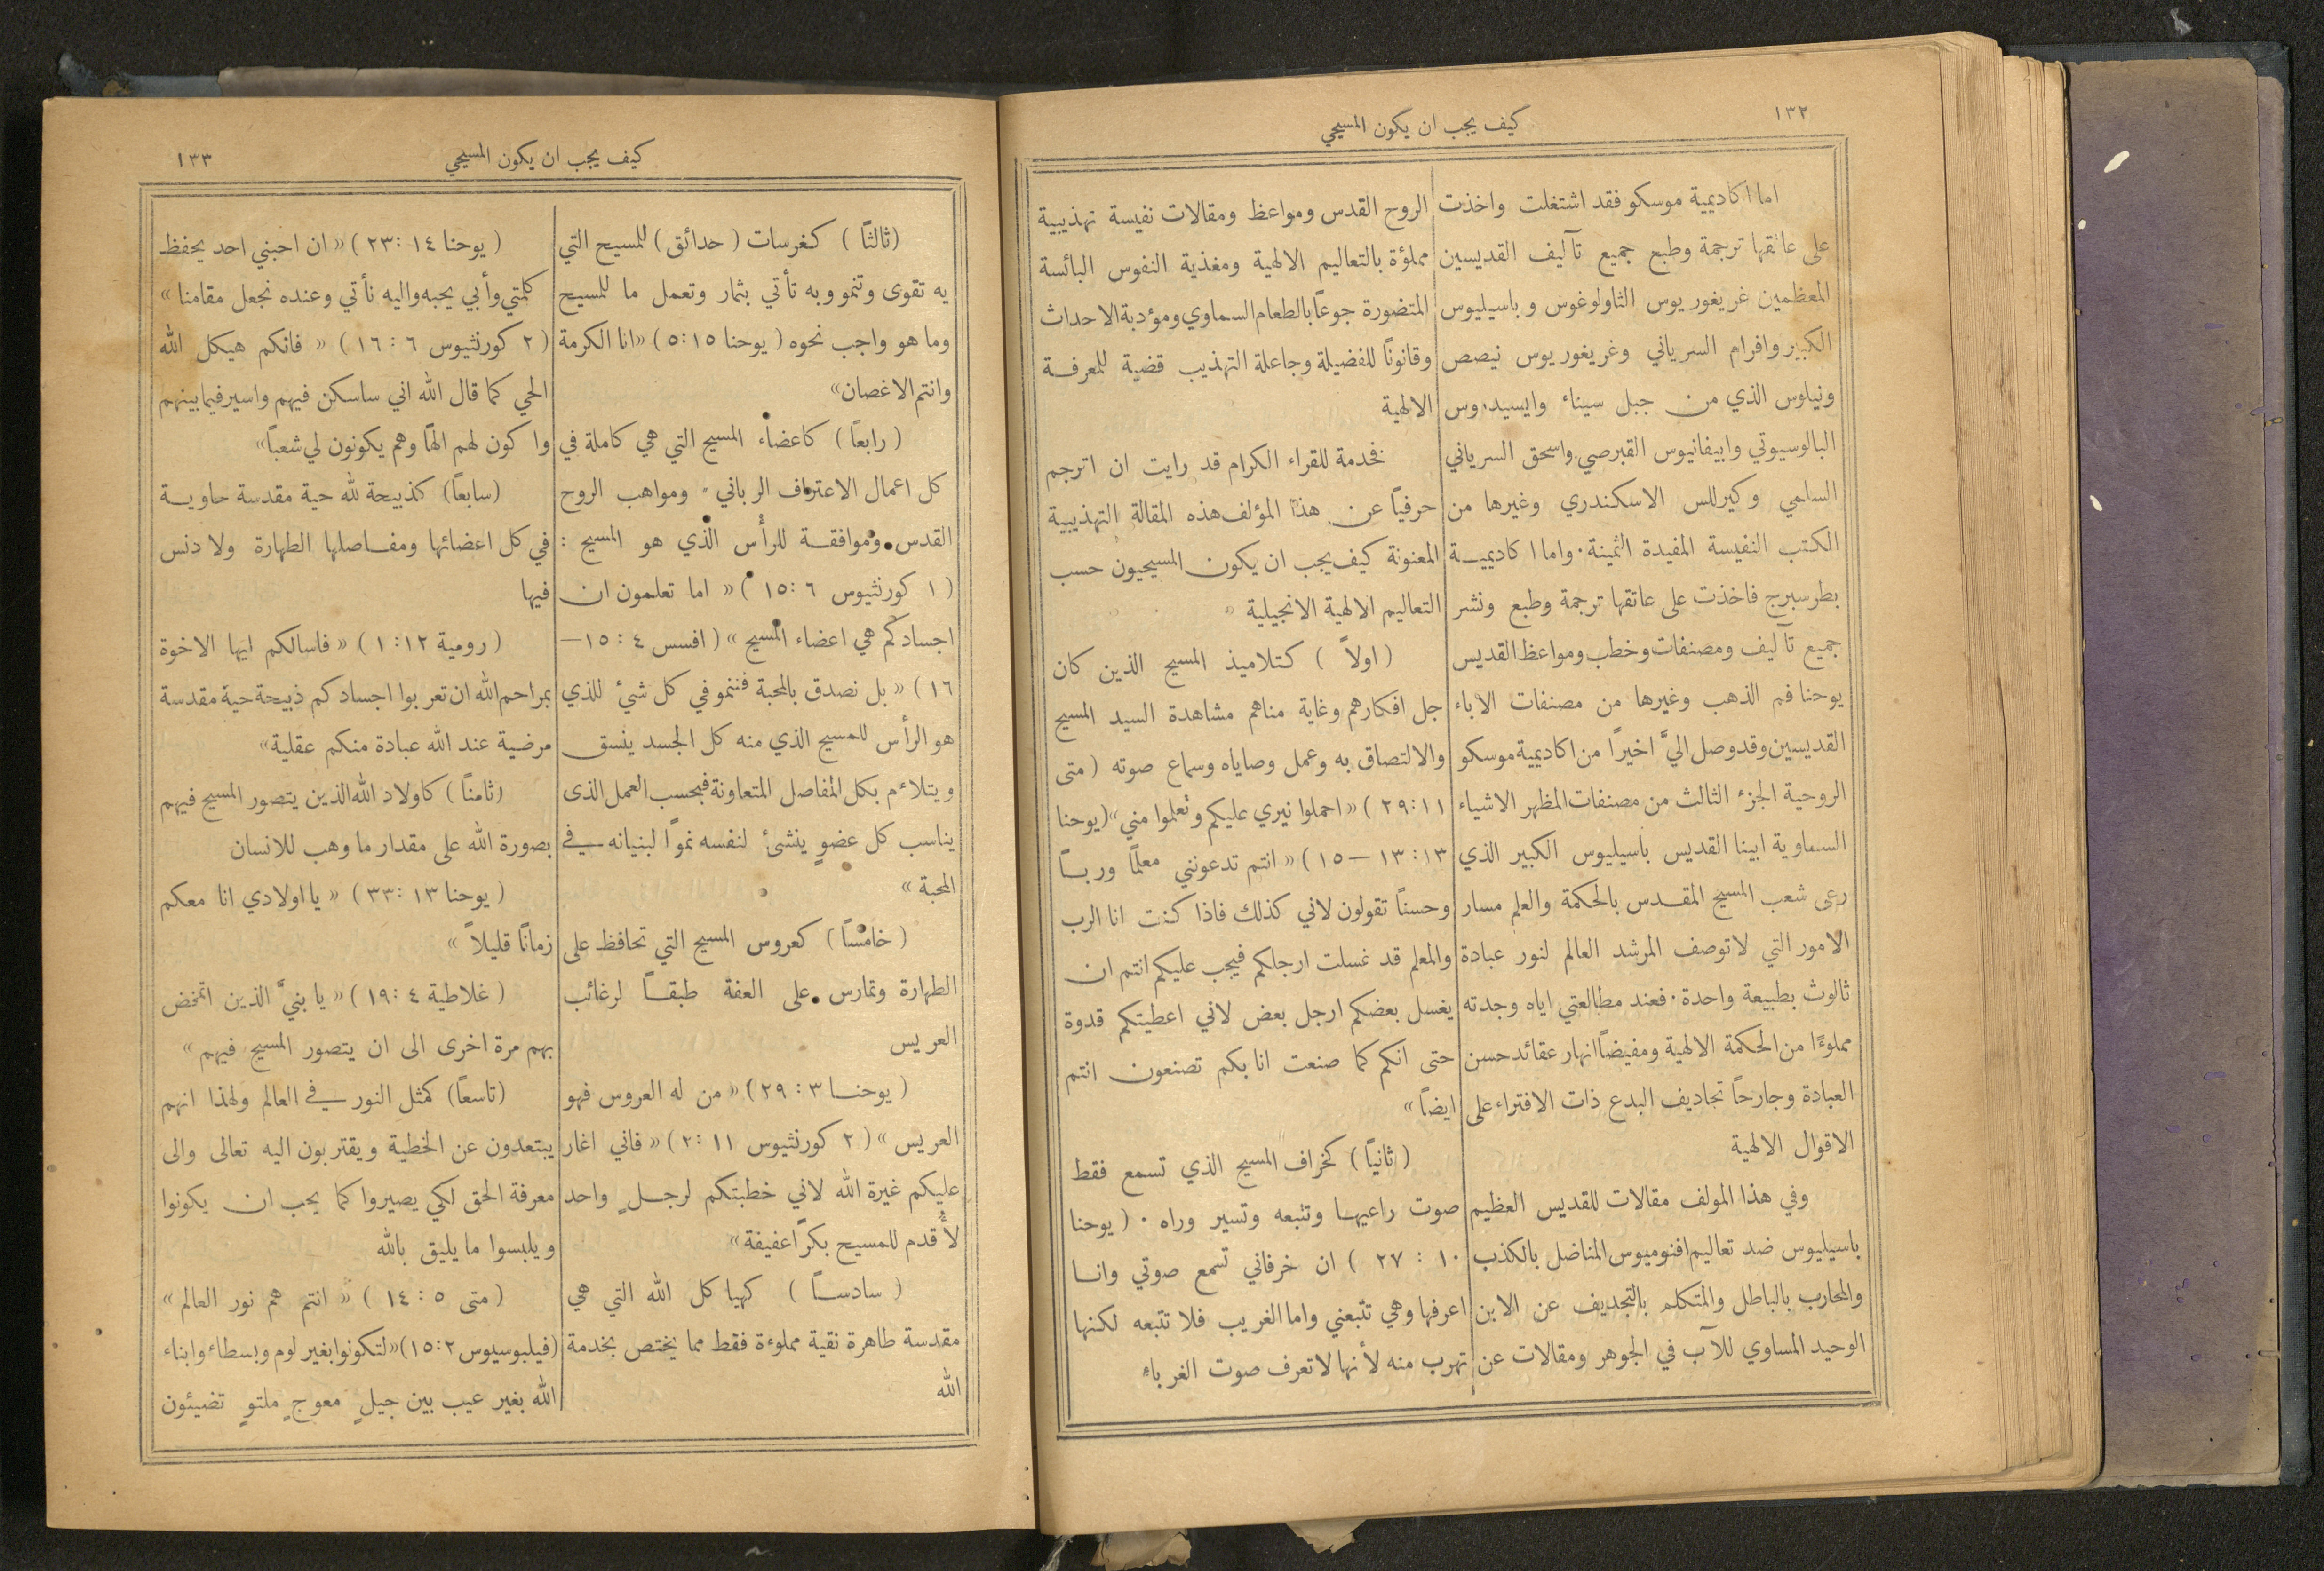 ١٣٢
كيف يجب ان يكون المسيحي
اما اكاديمية موسكو فقد اشتغلت واخذت
على عاتقها ترجمة وطبع جميع تآليف القديسين
المعظمين غريغوريوس الثاولوغوس وباسيليوس
الكبير وافرام السرياني وغريغوريوس نيصص
ونيلوس الذي من جبل سيناء وايسيدوروس
البالوسيوتي وابيفانيوس القبرصي واسحق السرياني
السامي وكيرللس الاسكندري وغيرها من
الكتب النفيسة المفيدة الثمينة. واما اكاديميـة
بطرسبرج فاخذت على عاتقها ترجمة وطبع ونشر
جميع تآليف ومصنفات وخطب ومواعظ القديس
يوحنا فم الذهب وغيرها من مصنفات الاباء
القديسين وقد وصل اليَّ اخيرًا من اكاديمية موسكو
الروحية الجزء الثالث من مصنفات المظهر الاشياء
السماوية ابينا القديس باسيليوس الكبير الذي
رعى شعب المسيح المقدس بالحكمة والعلم مسار
الامور التي لا توصف المرشد العالم لنور عبادة
ثالوث بطبيعة واحدة. فعند مطالعتي اياه وجدته
مملوءًا من الحكمة الالهية ومفيضًا انهار عقائد حسن
العبادة وجارحًا تجاديف البدع ذات الافتراء على
الاقوال الالهية
وفي هذا المولف مقالات للقديس العظيم
باسيليوس ضد تعاليم افنوميوس المناضل بالكذب
والمحارب بالباطل والمتكلم بالتجديف عن الابن
الوحيد المساوي للآب في الجوهر ومقالات عن
الروح القدس ومواعظ ومقالات نفيسة تهذيبية
مملؤة بالتعاليم الالهية ومغذية النفوس البائسة
المتضورة جوعًا بالطعام السماوي ومؤدبة الاحداث
وقانونًا للفضيلة وجاعلة التهذيب قضية للمعرفـة
الالهية
فخدمة للقراء الكرام قد رايت ان اترجم
حرفيًا عن هذا المؤلف هذه المقالة التهذيبية
المعنونة كيف يجب ان يكون المسيحيون حسب
التعاليم الالهية الانجيلية «
( اولاً ) كتلاميذ المسيح الذين كان
جل افكارهم وغاية مناهم مشاهدة السيد المسيح
والالتصاق به وعمل وصاياه وسماع صوته ( متى
١١ : ٢٩ ) « احملوا نيري عليكم وتعلموا مني» (يوحنا
١٣ : ١٣ — ١٥ ) « انتم تدعونني معلمًا وربـًا
وحسنًا تقولون لاني كذلك فاذا كنت انا الرب
والمعلم قد غسلت ارجلكم فيجب عليكم انتم ان
يغسل بعضكم ارجل بعض لاني اعطيتكم قدوة
حتى انكم كما صنعت انا بكم تصنعون انتم
ايضاً »
( ثانيًا ) كخراف المسيح الذي تسمع فقط
صوت راعيهـا وتتبعه وتسير وراه . ( يوحنا
١٠ : ٢٧ ) ان خرفاني تسمع صوتي وانـا
اعرفها وهي تتبعني واما الغريب فلا تتبعه لكنها
تهرب منه لأنها لا تعرف صوت الغرباء
كيف يجب ان يكون المسيحي
١٣٣
(ثالثًا ) كغرسات ( حدائق ) للمسيح التي
يه تقوى وتنمو وبه تأتي بثمار وتعمل ما للمسيح
وما هو واجب نحوه ( يوحنا ١٥ : ٥ ) «انا الكرمة
وانتم الاغصان»
( رابعًا ) كاعضاء المسيح التي هي كاملة في
كل اعمال الاعتراف الرباني ومواهب الروح
القدس وموافقـة للرأس الذي هو المسيح :
( ١ كورنثيوس ٦ : ١٥ ) « اما تعلمون ان
اجسادكم هي اعضاء المسيح » ( افسس ٤ : ١٥ —
١٦ ) « بل نصدق بالمحبة فننمو في كل شيء للذي
هو الرأس للمسيح الذي منه كل الجسد ينسق
ويتلاءم بكل المفاصل المتعاونة فبحسب العمل الذى
يناسب كل عضوٍ ينشئ لنفسه نموًا لبنيانه في
المحبة »
( خامسًا ) كعروس المسيح التي تحافظ على
الطهارة وتمارس على العفة طبقـًا لرغائب
العريس
( يوحنـا ٣ : ٢٩ ) « من له العروس فهو
العريس » ( ٢ كورنثيوس ١١ : ٢ ) « فاني اغار
عليكم غيرة الله لاني خطبتكم لرجـلٍ واحد
لأُقدم للمسيح بكرًا عفيفة »
( سادسـًا ) كهياكل الله التي هي
مقدسة طاهرة نقية مملوءة فقط مما يختص بخدمة
الله
( يوحنا ١٤ : ٢٣ ) « ان احبني احد يحفظ
كلمتي وأبي يحبه واليه نأتي وعنده نجعل مقامنا »
( ٢ كورنثيوس ٦ : ١٦ ) « فانكم هيكل الله
الحي كما قال الله اني ساسكن فيهم واسير فيما بينهم
واكون لهم الهًا وهم يكونون لي شعبًا»
(سابعًا) كذبيحة لله حية مقدسة حاويـة
في كل اعضائها ومفـاصلها الطهارة ولا دنس
فيها
( رومية ١٢ : ١ ) « فاسالكم ايها الاخوة
بمراحم الله ان تعربوا اجسادكم ذبيحة حية مقدسة
مرضية عند الله عبادة منكم عقلية»
(ثامنًا ) كاولاد الله الذين يتصور المسيح فيهم
بصورة الله على مقدار ما وهب للانسان
( يوحنا ١٣ : ٣٣ ) « يا اولادي انا معكم
زمانًا قليلاً »
( غلاطية ٤ : ١٩ ) « يا بنيَّ الذين اتمخض
بهم مرة اخرى الى ان يتصور المسيح فيهم »
(تاسعًا) كمثل النور في العالم ولهذا انهم
يبتعدون عن الخطية ويقتربون اليه تعالى والى
معرفة الحق لكي يصيروا كما يجب ان يكونوا
ويلبسوا ما يليق بالله
( متى ٥ : ١٤ ) « انتم هم نور العالم »
(فيلبوسيوس ٢ : ١٥) «لتكونوا بغير لوم وبسطاء وابناء
الله بغير عيب بين جيلٍ معوجٍ ملتوٍ تضيئون